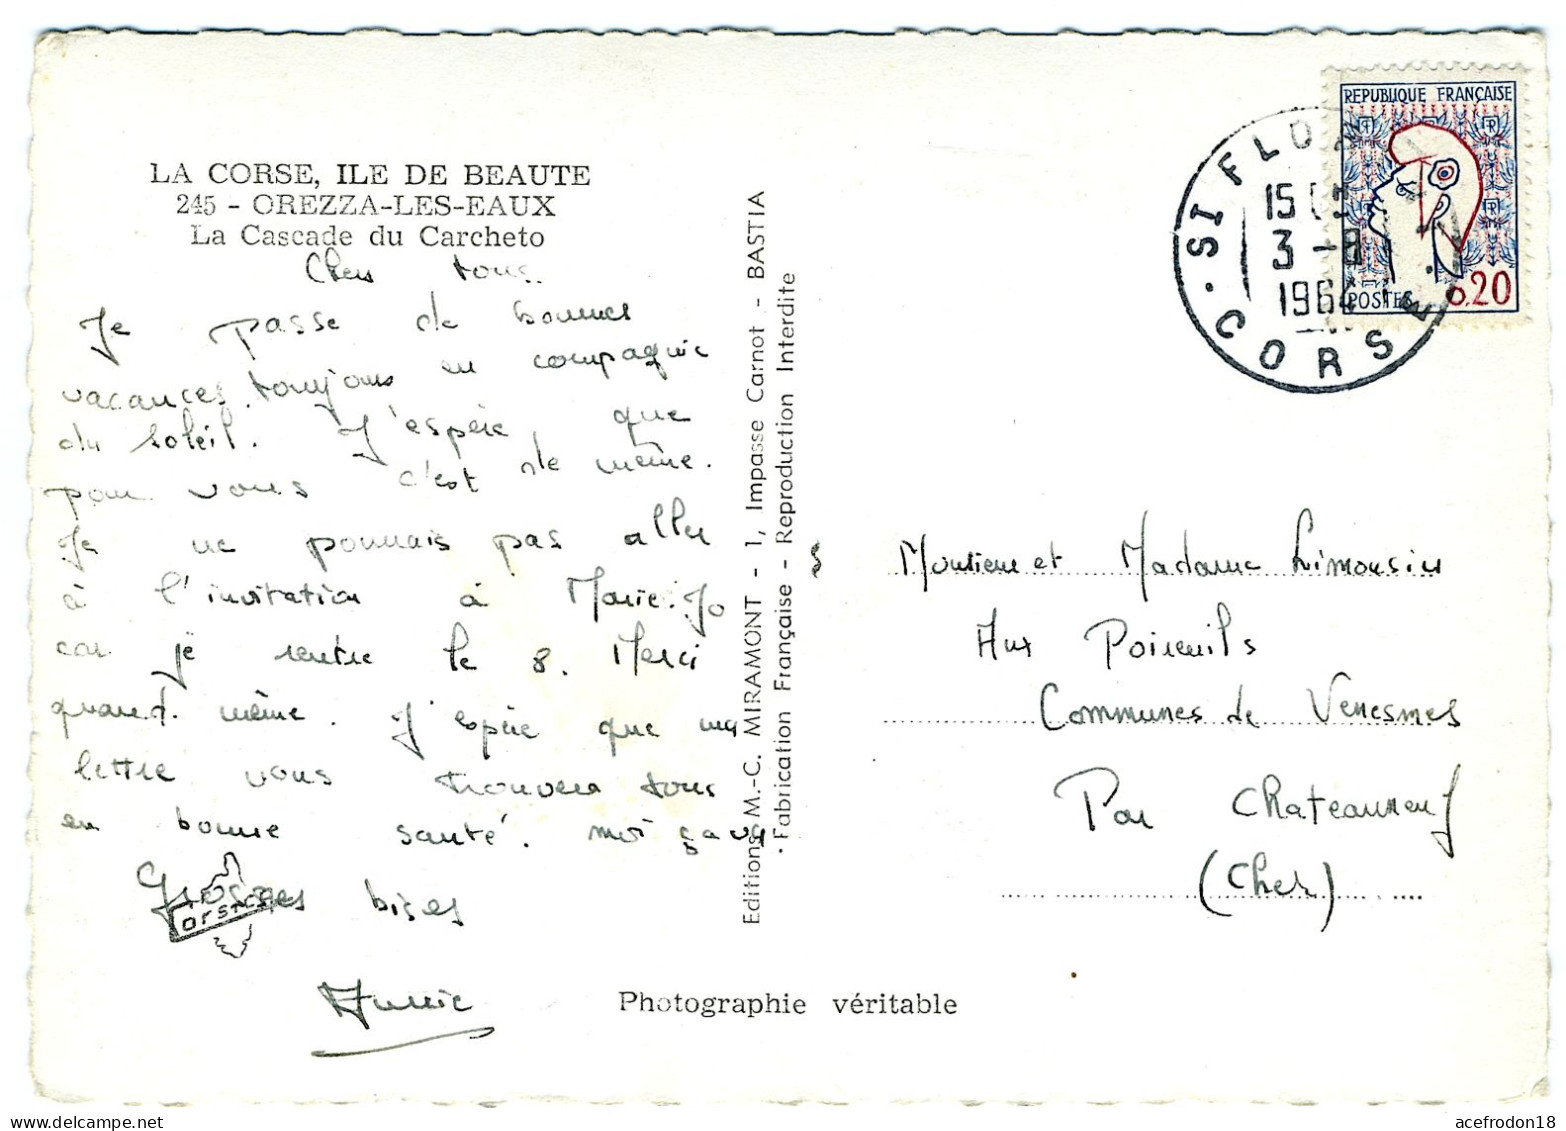 LA CORSE, ILE DE BEAUTE
245 - OREZZA-LES-EAUX
La Cascade du Carcheto
Chers tous.
Je passe de bonnes
vacances, toujours en compagnie
du soleil. J'espère que
pour vous c'est de même.
Je ne pourrais pas aller
à l'invitation à Marie-Jo
car je rentre le 8. Merci
quand même. J'espère que ma
lettre vous trouvera tous
en bonne santé. moi ça va
Grosses bises
Annie
Editions M.-C. MIRAMONT - 1, Impasse Carnot - BASTIA
Fabrication Française - Reproduction Interdite
Photographie véritable
REPUBLIQUE FRANÇAISE
POSTES 0,20
SI FLO
15
3 -8
1964
CORSE
Monsieur et Madame Limousin
Aux
Communes de Venesmes
Par Chateauneuf
(Cher)
acefrodon18